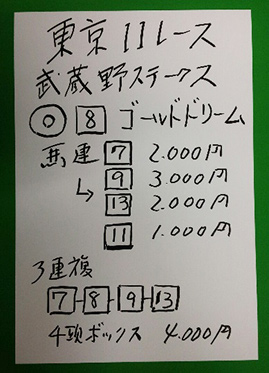 東京11レース
武蔵野ステークス
◎ 8 ゴールドドリーム
馬連 7 2.000円
↳ 9 3.000円
13 2.000円
11 1.000円
3連複
7-8-9-13
4頭ボックス 4.000円